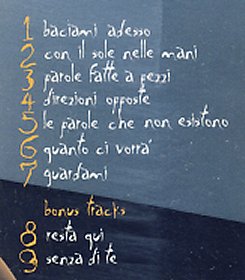 1 baciami adesso
2 con il sole nelle mani
3 parole fatte a pezzi
4 direzioni opposte
5 le parole che non esistono
6 quanto ci vorrà
7 guardami
bonus tracks
8 resta qui
9 senza di te